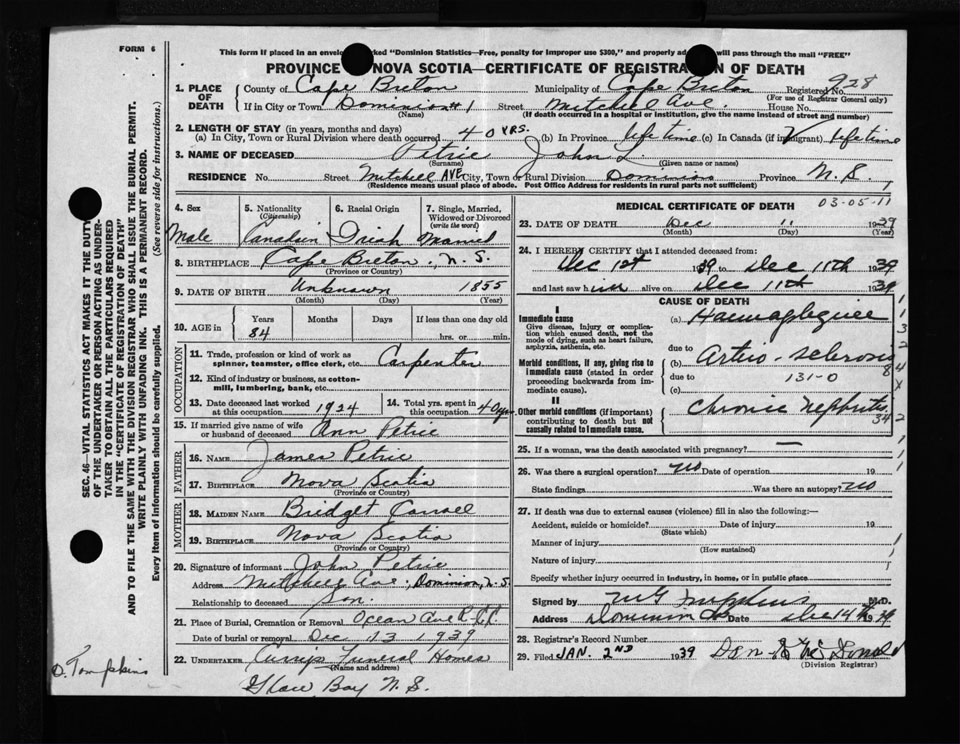 FORM 6
This form if placed in an envelo ked "Dominion Statistics—Free, penalty for improper use $300," and properly ad will pass through the mail "FREE"
PROVINCE NOVA SCOTIA—CERTIFICATE OF REGISTRA N OF DEATH
928
1. PLACE OF DEATH County of Cape Breton Municipality of Cape Breton Registered No.
(For use of Registrar General only)
If in City or Town Dominion #1 Street Mitchell Ave. House No.
(Name) (If death occurred in a hospital or institution, give the name instead of street and number)
2. LENGTH OF STAY (in years, months and days)
(a) In City, Town or Rural Division where death occurred 40 YRS. (b) In Province Lifetime (c) In Canada (if immigrant) Lifetime
3. NAME OF DECEASED Petrie John L.
(Surname) (Given name or names)
RESIDENCE No. Street Mitchell AVE City, Town or Rural Division Dominion Province N.S.
(Residence means usual place of abode. Post Office Address for residents in rural parts not sufficient)
4. Sex Male
5. Nationality (Citizenship) Canadian
6. Racial Origin Irish
7. Single, Married, Widowed or Divorced (write the word) Married
8. BIRTHPLACE Cape Breton, N.S.
(Province or Country)
9. DATE OF BIRTH Unknown 1855
(Month) (Day) (Year)
10. AGE in Years Months Days If less than one day old
84 hrs. or min.
OCCUPATION
11. Trade, profession or kind of work as spinner, teamster, office clerk, etc. Carpenter
12. Kind of industry or business, as cotton-mill, lumbering, bank, etc.
13. Date deceased last worked at this occupation 1924
14. Total yrs. spent in this occupation 40 yrs.
15. If married give name of wife or husband of deceased Ann Petrie
FATHER
16. NAME James Petrie
17. BIRTHPLACE Nova Scotia
(Province or Country)
MOTHER
18. MAIDEN NAME Bridget
19. BIRTHPLACE Nova Scotia
(Province or Country)
20. Signature of informant John Petrie
Address Mitchell Ave, Dominion, N.S.
Relationship to deceased Son
21. Place of Burial, Cremation or Removal Ocean Ave R.C.C.
Date of burial or removal Dec 13 1939
22. UNDERTAKER Funeral Home
(Name and address)
Glace Bay N.S.
MEDICAL CERTIFICATE OF DEATH
03-05-11
23. DATE OF DEATH Dec 11 1939
(Month) (Day) (Year)
24. I HEREBY CERTIFY that I attended deceased from:
Dec 1st 1939 to Dec 11th 1939
and last saw him alive on Dec 11th 1939
CAUSE OF DEATH
I
Immediate cause
Give disease, injury or complication which caused death, not the mode of dying, such as heart failure, asphyxia, asthenia, etc.
(a)
due to
Morbid conditions, if any, giving rise to immediate cause (stated in order proceeding backwards from immediate cause).
(b) Arterio-sclerosis
due to 131-0
(c)
II
Other morbid conditions (if important) contributing to death but not causally related to immediate cause.
Chronic Nephritis
34
25. If a woman, was the death associated with pregnancy? —
26. Was there a surgical operation? no Date of operation 19
State findings Was there an autopsy? no
27. If death was due to external causes (violence) fill in also the following:—
Accident, suicide or homicide? Date of injury 19
(State which)
Manner of injury
(How sustained)
Nature of injury
Specify whether injury occurred in industry, in home, or in public place
Signed by M.D.
Address Dominion Date Dec 14th 39
28. Registrar's Record Number
29. Filed JAN. 2ND 1939 Dan
(Division Registrar)
D. Tompkins
SEC. 46—VITAL STATISTICS ACT MAKES IT THE DUTY OF THE UNDERTAKER OR PERSON ACTING AS UNDERTAKER TO OBTAIN ALL THE PARTICULARS REQUIRED IN THE "CERTIFICATE OF REGISTRATION OF DEATH" AND TO FILE THE SAME WITH THE DIVISION REGISTRAR WHO SHALL ISSUE THE BURIAL PERMIT.
WRITE PLAINLY WITH UNFADING INK. THIS IS A PERMANENT RECORD.
Every item of information should be carefully supplied. (See reverse side for instructions.)